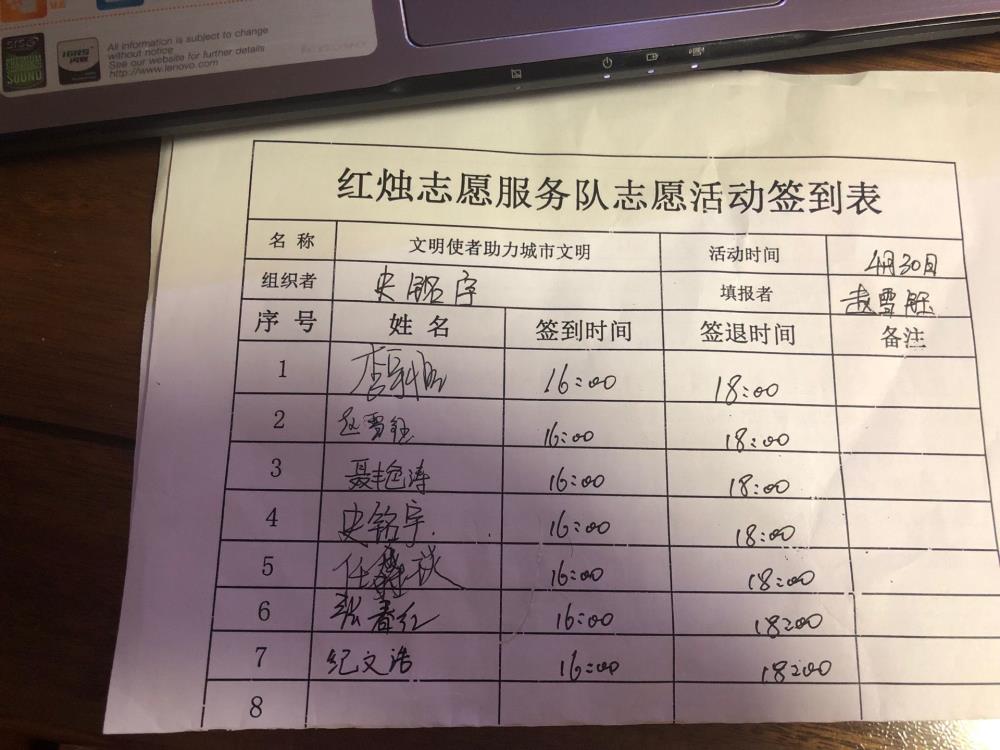 All information is subject to change
without notice
See our website for further details
http://www.lenovo.com
SOUND
红烛志愿服务队志愿活动签到表
名 称 文明使者助力城市文明 活动时间 4月30日
组织者 史铭宇 填报者 赵雪钰
序 号 姓 名 签到时间 签退时间 备注
1 16:00 18:00
2 赵雪钰 16:00 18:00
3 聂艳涛 16:00 18:00
4 史铭宇 16:00 18:00
5 16:00 18:00
6 张春红 16:00 18:00
7 纪文浩 16:00 18:00
8